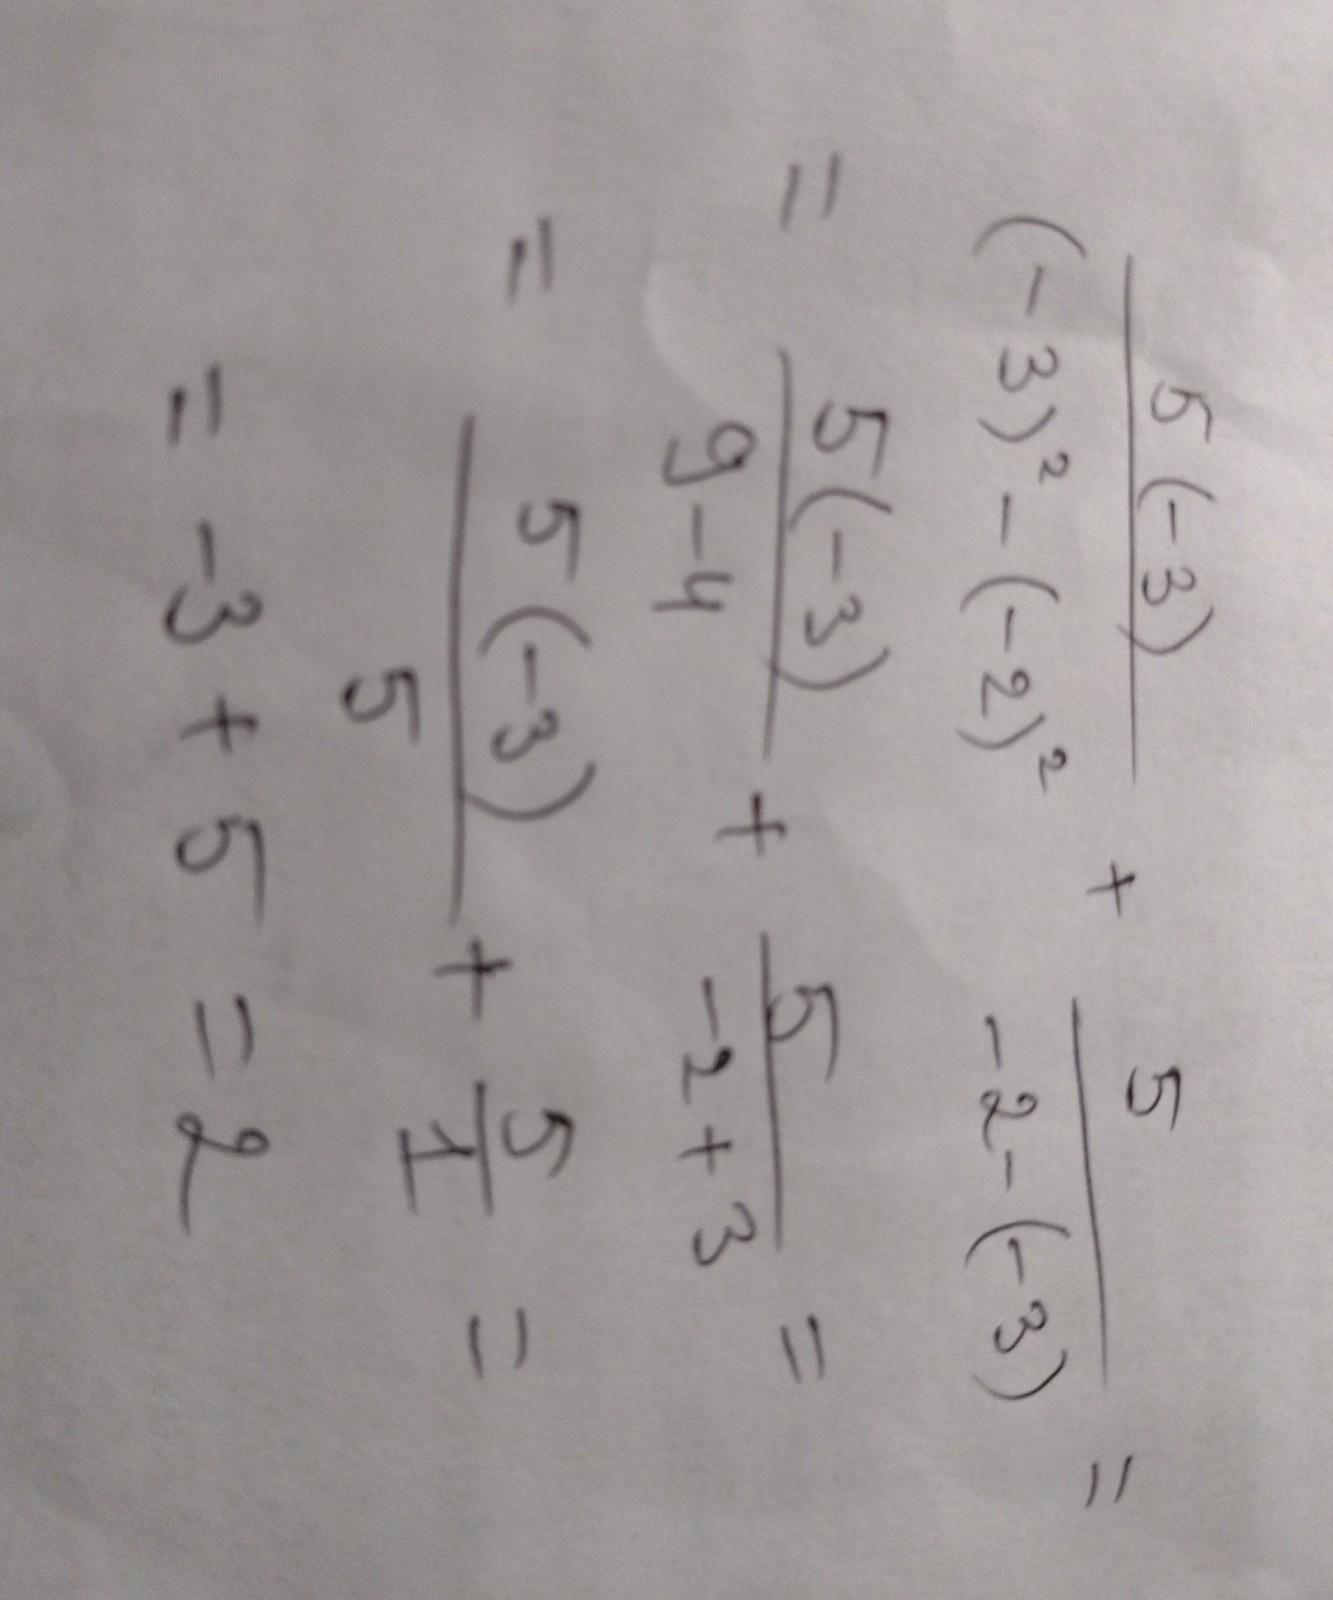 5(-3)/((-3)² - (-2)²) + 5/(-2-(-3)) =
= 5(-3)/(9-4) + 5/(-2+3) =
= 5(-3)/5 + 5/1 =
= -3 + 5 = 2